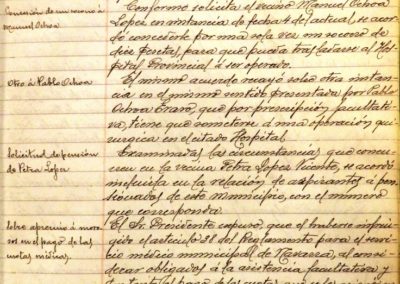 Concesión de un socorro á
Manuel Ochoa
Conforme solicita el vecino Manuel Ochoa
Lopez en instancia de fecha 4 del actual, se acor-
dó concederle por una sola vez un socorro de
diez pesetas, para que pueda trasladarse al Hos-
pital Provincial á ser operado.
Otro á Pablo Ochoa
El mismo acuerdo recayó sobre otra instan-
cia en el mismo sentido presentada por Pablo
Ochoa, que por prescripción facultati-
va, tiene que someterse á una operación qui-
rurgica en el citado Hospital.
Solicitud de pensión
de Petra Lopez
Examinadas las circunstancias que concu-
rren en la vecina Petra Lopez Vicente, se acordó
incluirla en la relación de aspirantes á pen-
sionados de este municipio, con el número
que corresponda.
Sobre apremio á moro-
sos en el pago de las
cuotas médicas.
El Sr. Presidente expuso, que el haberse infrin-
gido el artículo 38 del Reglamento para el servi-
cio médico municipal de Navarra, al consi-
derar obligados á la asistencia facultativa y